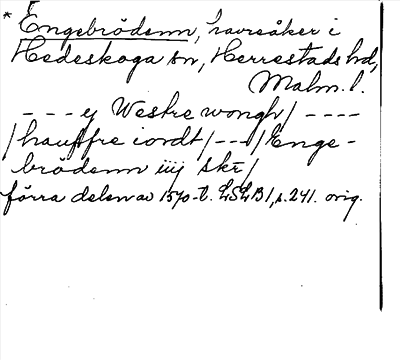 * Engebrödenn, havreåker i
Hedeskoga sn, Herrestads hd,
Malm. l.
- - - ej Westre wongh / - - - -
/ hauffre iordt / - - - / Enge-
brödenn iiij skr /
förra delen av 1570-t. LSLB1, s. 241. orig.